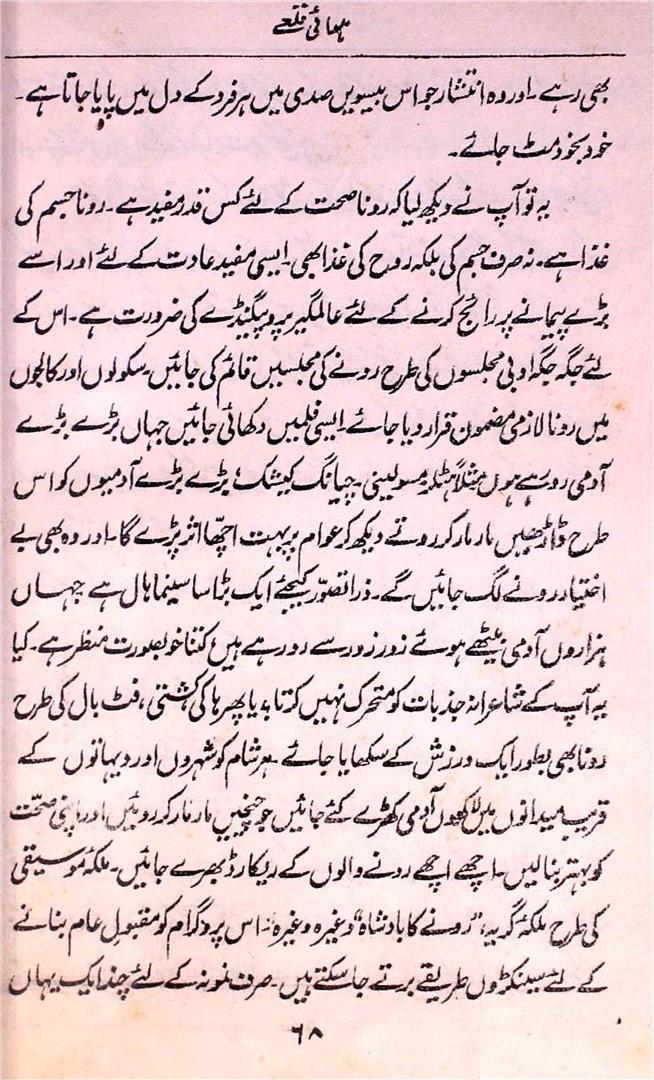 ہوائی قلعے
بھی رہے ۔ اور وہ انتشار جو اس بیسویں صدی میں ہر فرد کے دل میں پایا جاتا ہے ۔
خود بخود مٹ جائے ۔
یہ تو آپ نے دیکھ لیا کہ رونا صحت کے لئے کس قدر مفید ہے ۔ رونا جسم کی
غذا ہے ۔ نہ صرف جسم کی بلکہ روح کی غذا بھی ۔ ایسی مفید عادت کے لئے اور اسے
بڑے پیمانے پر رائج کرنے کے لئے عالمگیر پروپیگنڈے کی ضرورت ہے ۔ اس کے
لئے جگہ جگہ ادبی مجلسوں کی طرح رونے کی مجلسیں قائم کی جائیں ۔ سکولوں اور کالجوں
میں رونا لازمی مضمون قرار دیا جائے ۔ ایسی فلمیں دکھائی جائیں جہاں بڑے بڑے
آدمی رو رہے ہوں مثلاً ہٹلر، مسولینی ۔ چیانگ کیشک، بڑے بڑے آدمیوں کو اس
طرح ڈاڑھیں مار مار کر روتے دیکھ کر عوام پر بہت اچھا اثر پڑے گا ۔ اور وہ بھی بے
اختیار رونے لگ جائیں گے ۔ ذرا تصوّر کیجئے ایک بڑا سا سینما ہال ہے جہاں
ہزاروں آدمی بیٹھے ہوئے زور زور سے رو رہے ہیں کتنا خوبصورت منظر ہے ۔ کیا
یہ آپ کے شاعرانہ جذبات کو متحرک نہیں کرتا ۔ یا پھر ہاکی، کشتی، فٹ بال کی طرح
رونا بھی بطور ایک ورزش کے سکھایا جائے ۔ ہر شام کو شہروں اور دیہاتوں کے
قریب میدانوں میں لاکھوں آدمی کھڑے کئے جائیں جو چیخیں مار مار کر روئیں اور اپنی صحّت
کو بہتر بنا لیں ۔ اچھے اچھے رونے والوں کے ریکارڈ بھرے جائیں ۔ ملکۂ موسیقی
کی طرح ملکۂ گریہ، "رونے کا بادشاہ" وغیرہ وغیرہ ۔ اس پروگرام کو مقبولِ عام بنانے
کے لئے سینکڑوں طریقے برتے جا سکتے ہیں ۔ صرف نمونہ کے لئے چند ایک یہاں
۶۸